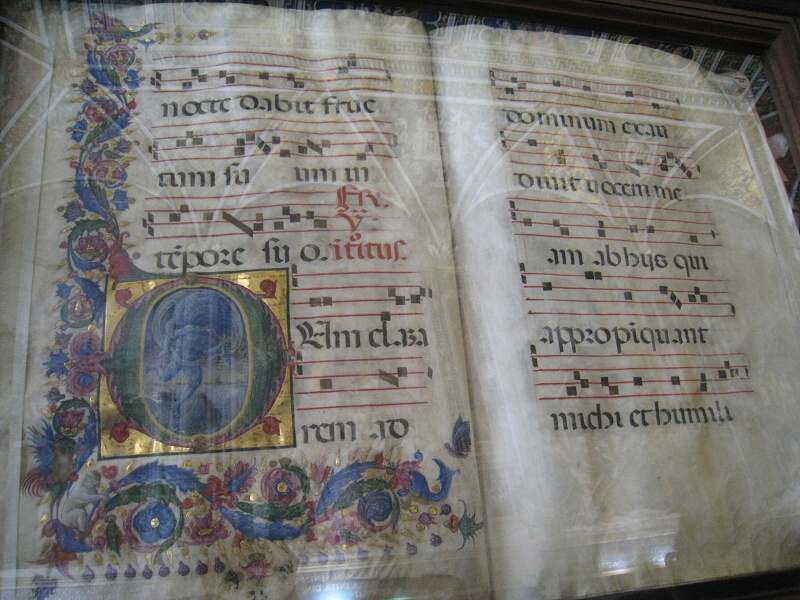 nocte dabit fruc
tum su um in
tēpore su o.
Um clama
rem ad
dominum exau
divit vocem me
am ab hijs qui
appropiquant
michi et humili